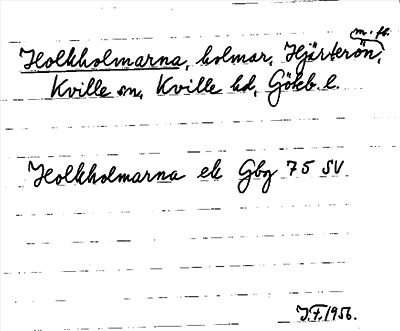 Holkholmarna, holmar, Hjärterön, m. fl.
Kville sn, Kville hd, Göteb. l.
Holkholmarna ek Gbg 75 SV
J.F. 1956.